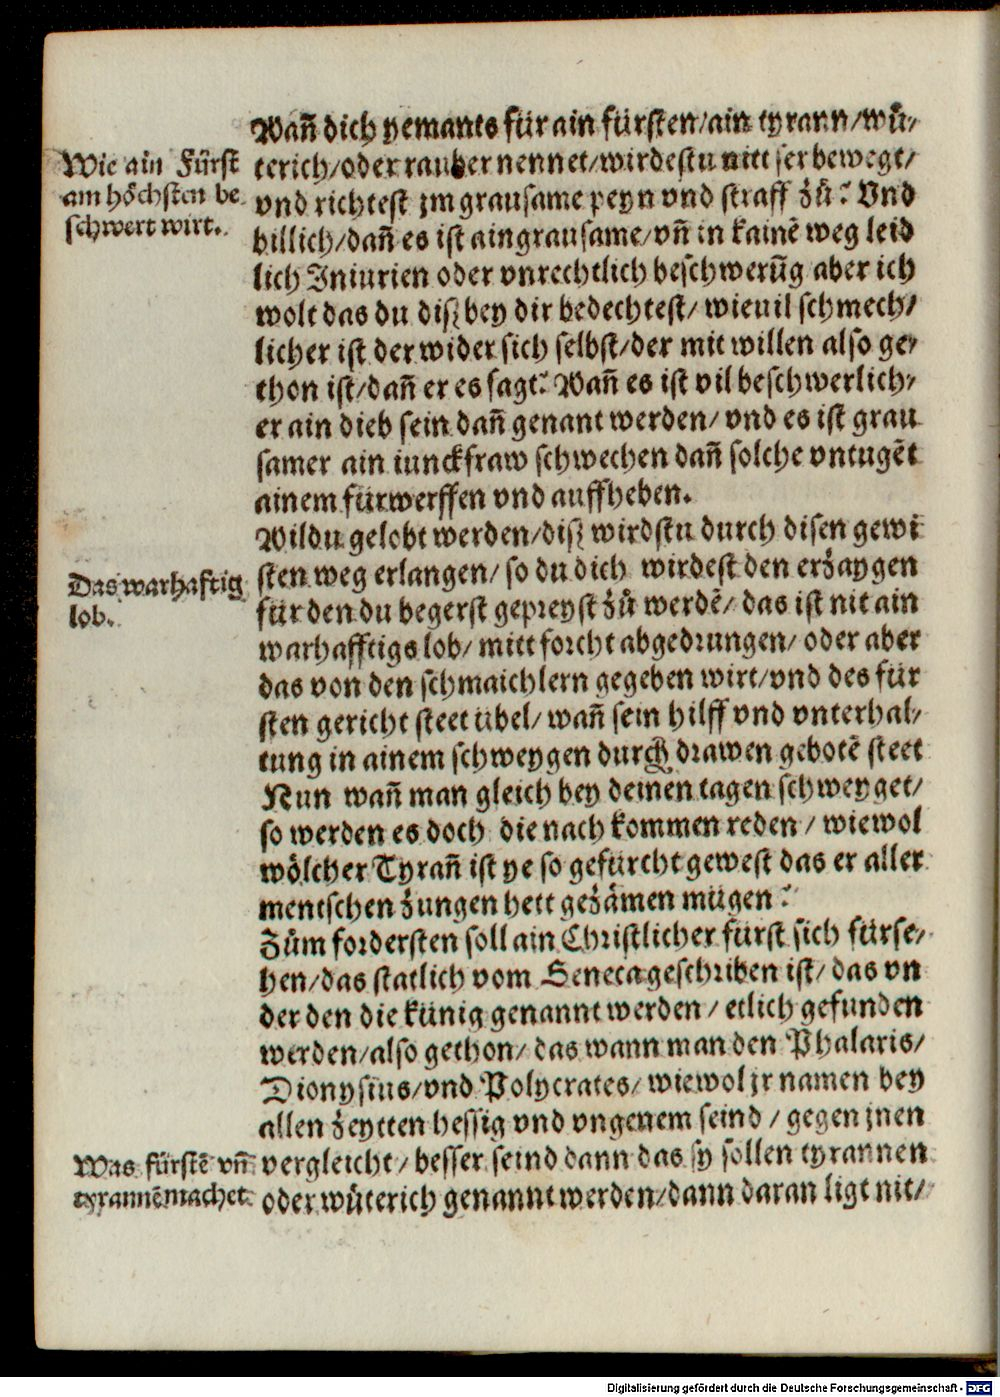 Wie ain Fürst
am höchsten be
schwert wirt.
Wañ dich yemants für ain fürsten/ain tyrann/wů/
terich/oder rauber nennet/wirdestu nitt ser bewegt/
vnd richtest jm grausame peyn vnd straff zů? Vnd
billich/dañ es ist ain grausame/vñ in kainē weg leid
lich Iniurien oder vnrechtlich beschwerūg aber ich
wolt das du diß bey dir bedechtest/wieuil schmech/
licher ist der wider sich selbst/der mit willen also ge/
thon ist/dañ er es sagt? Wañ es ist vil beschwerlich/
er ain dieb sein dañ genant werden/vnd es ist grau
samer ain iunckfraw schwechen dañ solche vntugēt
ainem fürwerffen vnd auffheben.
Wildu gelobt werden/diß wirdstu durch disen gewi
Das warhaftig
lob.
sten weg erlangen/so du dich wirdest den erzaygen
für den du begerst gepreyst zů werdē/das ist nit ain
warhafftigs lob/mitt forcht abgedrungen/oder aber
das von den schmaichlern gegeben wirt/vnd des für
sten gericht steet übel/wañ sein hilff vnd vnterhal/
tung in ainem schweygen durch drawen gebotē steet
Nun wañ man gleich bey deinen tagen schweyget/
so werden es doch die nach kommen reden/wiewol
wölcher Tyrañ ist ye so gefürcht gewest das er aller
mentschen zungen hett gezämen mügen?
Zům fordersten soll ain Christlicher fürst sich fürse/
hen/das statlich vom Seneca geschriben ist/das vn
der den die künig genannt werden/etlich gefunden
werden/also gethon/das wann man den Phalaris/
Dionysius/vnd Polycrates/wiewol jr namen bey
allen zeytten hessig vnd vngenem seind/gegen jnen
Was fürstē vñ
tyrannē machet.
vergleicht/besser seind dann das sy sollen tyrannen
oder wůterich genannt werden/dann daran ligt nit/
Digitalisierung gefördert durch die Deutsche Forschungsgemeinschaft - DFG